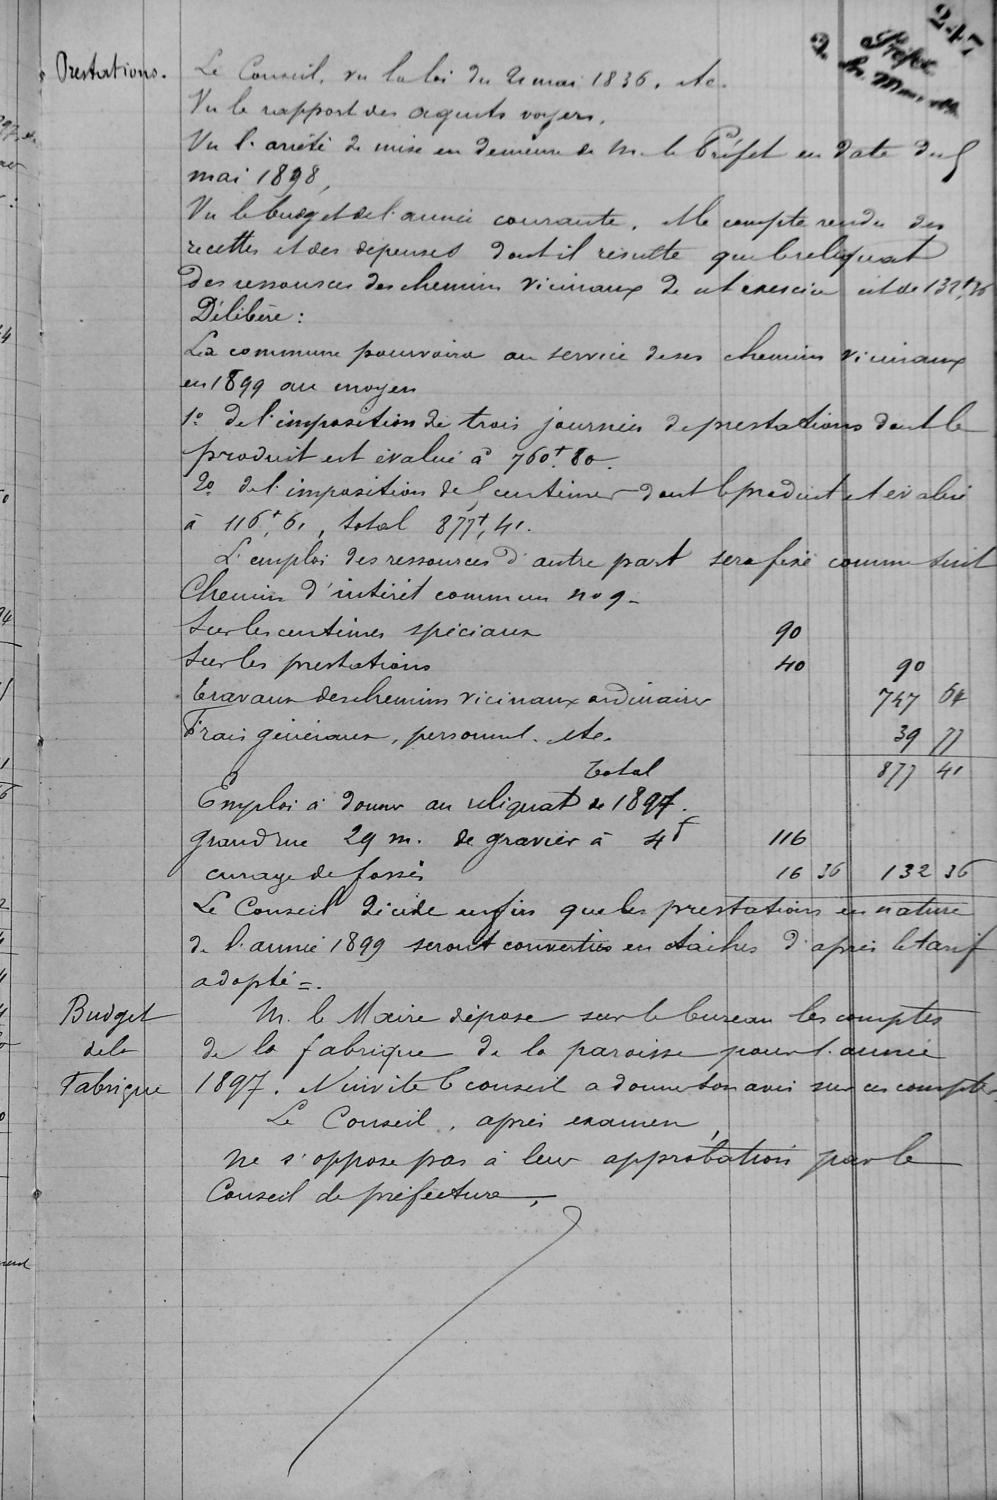 247
Préfet
Prestations.
Le Conseil, vu la loi du 21 mai 1836, etc.
Vu le rapport des agents voyers,
Vu l'arrêté de mise en demeure de M. le Préfet en date du 5
mai 1898,
Vu le budget de l'année courante, et le compte rendu des
recettes et des dépenses dont il résulte que le reliquat
des ressources des chemins vicinaux de cet exercice est de 132f,36
Délibère :
La commune pourvoira au service de ses chemins vicinaux
en 1899 au moyen
1º de l'imposition de trois journées de prestations dont le
produit est évalué à 760f.80.
2º de l'imposition de 5 centimes dont le produit est évalué
à 116f,61, total 877f,41.
L'emploi des ressources d'autre part sera fixé comme suit
Chemin d'intérêt commun no 9-
Sur les centimes spéciaux 90
Sur les prestations 40 90
Travaux des chemins vicinaux ordinaires 747 64
Frais généraux, personnel, etc. 39 77
Total 877 41
Emploi à donner au reliquat de 1897.
Grand'rue 29 m. de gravier à 4f 116
curage de fossés 16 36 132 36
Le Conseil décide enfin que les prestations en nature
de l'année 1899 seront converties en tâches d'après le tarif
adopté =.
Budget
de la
Fabrique
M. le Maire dépose sur le bureau les comptes
de la fabrique de la paroisse pour l'année
1897. Il invite le conseil a donner son avis sur ces comptes.
Le Conseil, après examen,
ne s'oppose pas à leur approbation par le
Conseil de préfecture,